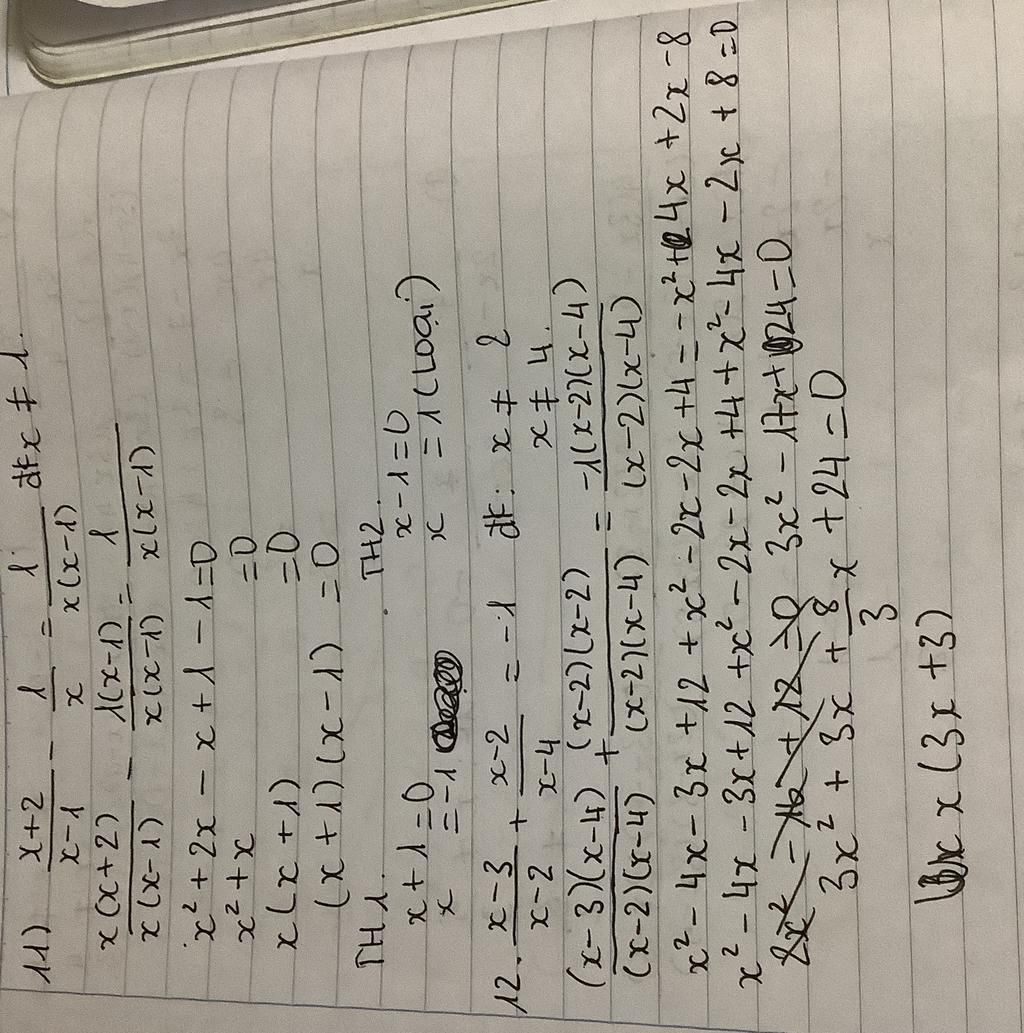 11) \frac{x+2}{x-1} - \frac{1}{x} = \frac{1}{x(x-1)} đk x ≠ 1.
\frac{x(x+2)}{x(x-1)} - \frac{1(x-1)}{x(x-1)} = \frac{1}{x(x-1)}
x² + 2x - x + 1 - 1 = 0
x² + x = 0
x(x+1) = 0
(x+1)(x-1) = 0
TH1. TH2.
x+1=0 x-1=0
x =-1 x =1 (Loại)
12. \frac{x-3}{x-2} + \frac{x-2}{x-4} = -1 đk: x ≠ 2
x ≠ 4.
\frac{(x-3)(x-4)}{(x-2)(x-4)} + \frac{(x-2)(x-2)}{(x-2)(x-4)} = \frac{-1(x-2)(x-4)}{(x-2)(x-4)}
x² - 4x - 3x + 12 + x² - 2x - 2x + 4 = -x² + 4x + 2x - 8
x² - 4x - 3x + 12 + x² - 2x - 2x + 4 + x² - 4x - 2x + 8 = 0
3x² - 17x + 24 = 0
3x² + 3x + \frac{8}{3}x + 24 = 0
x(3x+3)